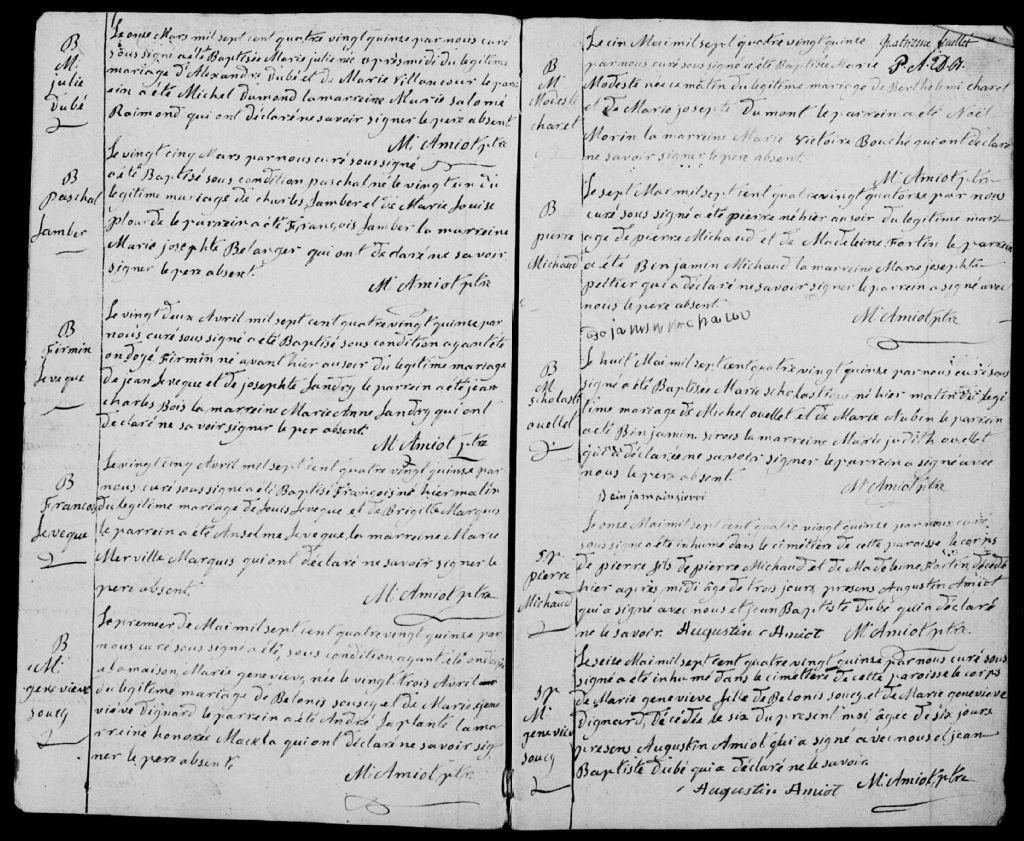 B
M.
julie
Dubé
Le onse Mars mil sept cent quatre vingt quinse par nous curé
sous signé a été Baptisée Marie julie née apresmidi du legitime
mariage d'Alexandre Dubé et de Marie Villancour le parr
ein a été Michel Dumond la marreine Marie salomé
Raimond qui ont déclaré ne savoir signer le pere absent
M. Amiot ptre
B
Paschal
Jamber
Le vingt cinq Mars par nous curé sous signé
a été Baptisé sous condition paschal né le vingt un du
legitime mariage de charles Jamber et de Marie Louise
plourde le parrein a été François Jamber la marreine
Marie josephte Belanger qui ont déclaré ne savoir
signer le pere absent.
M. Amiot ptre
B
Firmin
Leveque
Le vingt deux Avril mil sept cent quatre vingt quinse par
nous curé sous signé a été Baptisé sous condition ayant été
ondoyé Firmin né avant hier au soir du legitime mariage
de jean Leveque et de josephte Landry le parrein a été jean
charles Bois la marreine Marie Anne Landry qui ont
déclaré ne savoir signer le per absent.
M. Amiot ptre
B
Francois
Leveque
Le vingt cinq Avril mil sept cent quatre vingt quinse par
nous curé sous signé a été Baptisé François né hier matin
du legitime mariage de Louis Leveque et de Brigitte Marquis
le parrein a été Anselme Leveque la marreine Marie
Merville Marquis qui ont déclaré ne savoir signer le
pere absent.
M. Amiot ptre
B
M.
genevieve
soucy
Le premier de Mai mil sept cent quatre vingt quinse par
nous curé sous signé a été, sous condition ayant été ondoyée
a la maison, Marie genevieve, née le vingt trois Avril
du legitime mariage de Belonis souscy et de Marie gene
viéve Dignard le parrein a été André Laplante la ma
rreine honorée Mackla qui ont déclaré ne savoir sig
ner le pere absent.
M. Amiot ptre
quatrieme feuillet
P. A. 2D. A.
B
M
Modeste
charet
Le cin Mai mil sept quatre vingt quinse
par nous curé sous signé a été Baptisée Marie
Modeste née ce matin du legitime mariage de Berthelemi charet
et de Marie josephte Dumont le parrein a été Noël
Morin la marreine Marie Victoire Bouché qui ont déclaré
ne savoir signer le pere absent.
M. Amiot ptre
B
pierre
Michaud
Le sept Mai mil sept cent quatre vingt quatorse par nous
curé sous signé a été pierre né hier au soir du legitime mari
age de pierre Michaud et de Madeleine Fortin le parrein
a été Binjamin Michaud la marreine Marie josephte
peltier qui a déclaré ne savoir signer le parrein a signé avec
nous le pere absent.
M. Amiot ptre
B
M.
scholasti
ouellet
Le huit Mai mil sept cent quatre vingt quinse par nous curé sous
signé a été Baptisée Marie scholastique né hier matin du legi
time mariage de Michel ouellet et de Marie Aubin le parrein
a été Binjamin sirois la marreine Marie judith ouellet
qui a déclaré ne savoir signer le parrein a signé avec
nous le pere absent.
M. Amiot ptre
sp.
pierre
Michaud
Le onse Mai mil sept cent quatre vingt quinse par nous curé
sous signé a été inhumé dans le cimétiere de cette paroisse le corps
de pierre fils de pierre Michaud et de Madeleine Fortin décédé
hier après midi âgé de trois jours, presens Augustin Amiot
qui a signé avec nous et jean Baptiste Dubé qui a déclaré
ne le savoir. Augustin Amiot M. Amiot ptre.
sp.
M.
genevieve
soucy
Le seize Mai mil sept cent quatre vingt quinse par nous curé sous
signé a été inhumé dans le cimétiere de cette paroisse le corps
de Marie genevieve fille de Belonis soucy et de Marie genevieve
Dignard, décédée le six du present moi âgée de six jours
presens Augustin Amiot qui a signé avec nous et jean
Baptiste Dubé qui a déclaré ne le savoir.
Augustin Amiot M. Amiot, ptre